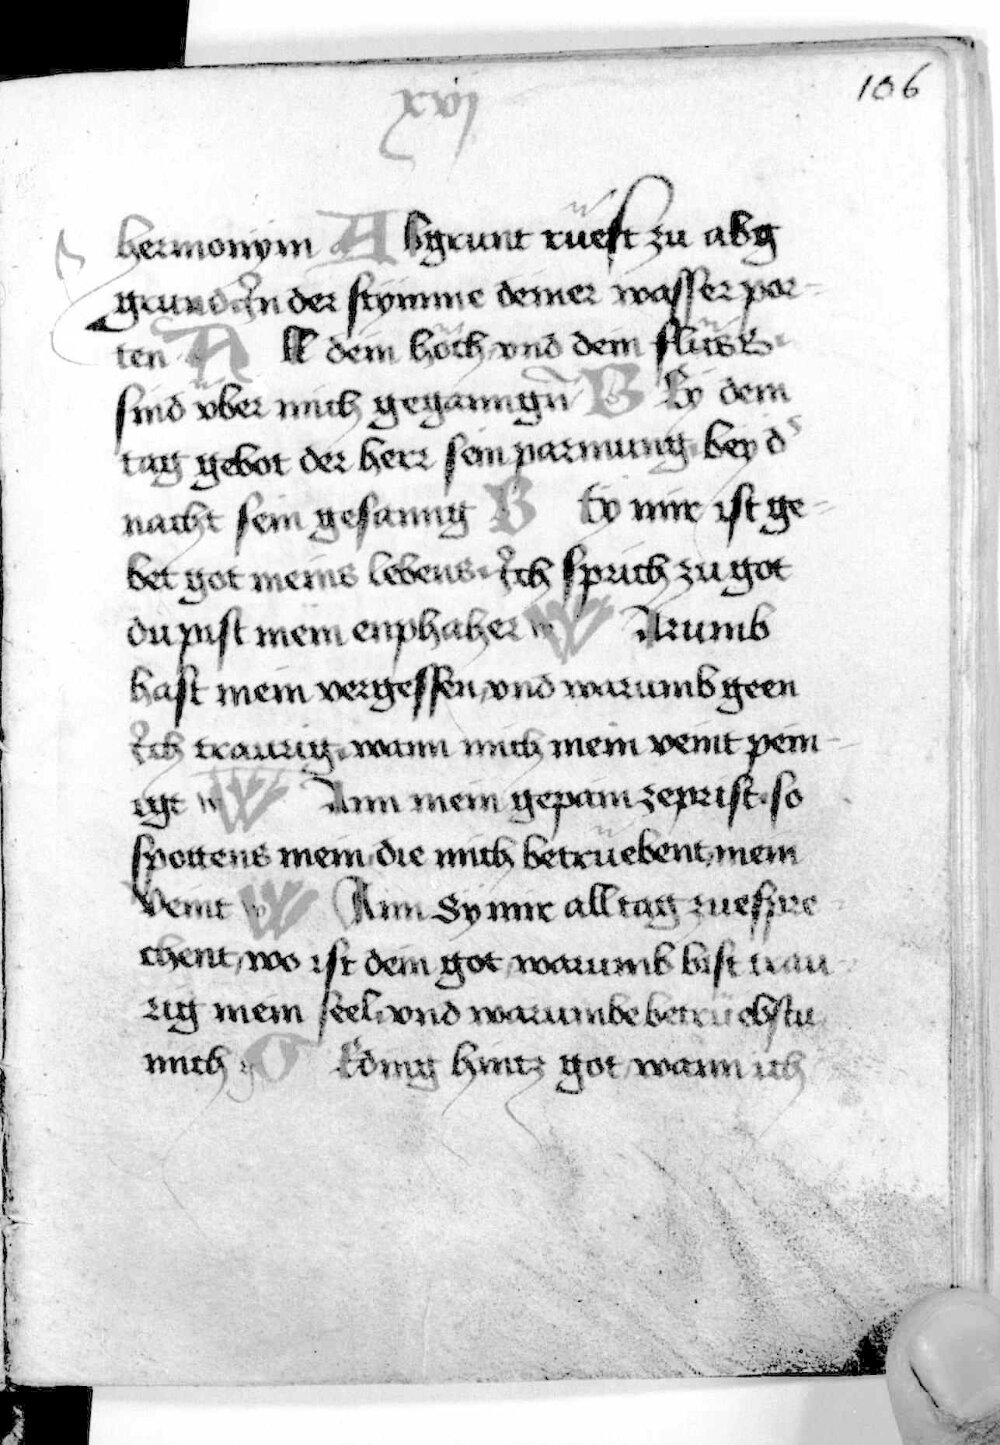 xvj
106
hermonijm Abgrunt rüest zu abg
grund Jn der stymme deiner wasser por-
ten All dein höch, vnd dein flüss
sind vber mich geganngñ Bey dem
tag gebot der herr sein parmung, bey ds
nacht sein gesanng Bey mir ist ge-
bet got meins lebens, Ich sprich zu got
du pist mein enphaher WArumb
hast mein vergessen, vnd warumb geen
Ich traurig, wann mich mein veint pein-
igt WAnn mein gepain zeprist, so
spottens mein, die mich betrüebent, mein
Veint WAnn Sy mir all tag zuespre-
chent, wo ist dein got, warumb bist trau-
rig mein seel, vnd warumbe betrüebstu
mich GEding hintz got, wann ich